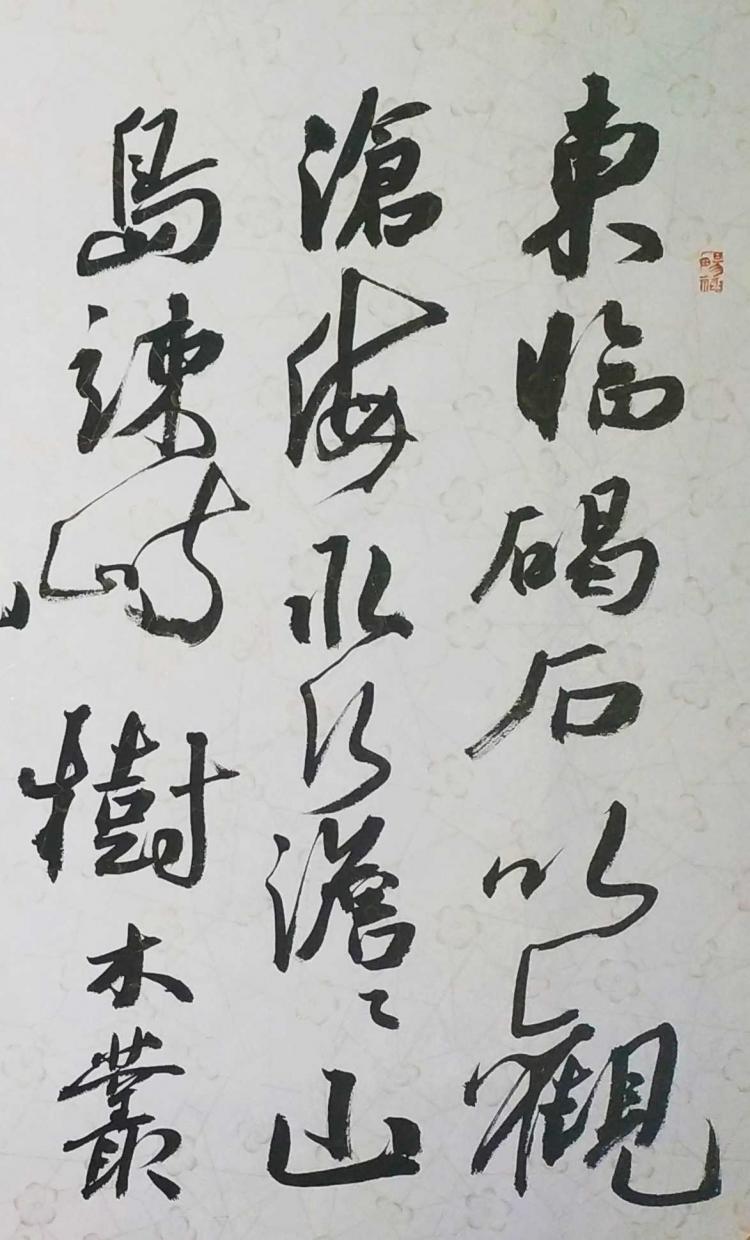 東臨碣石以觀
滄海水何澹々山
島竦峙樹木叢